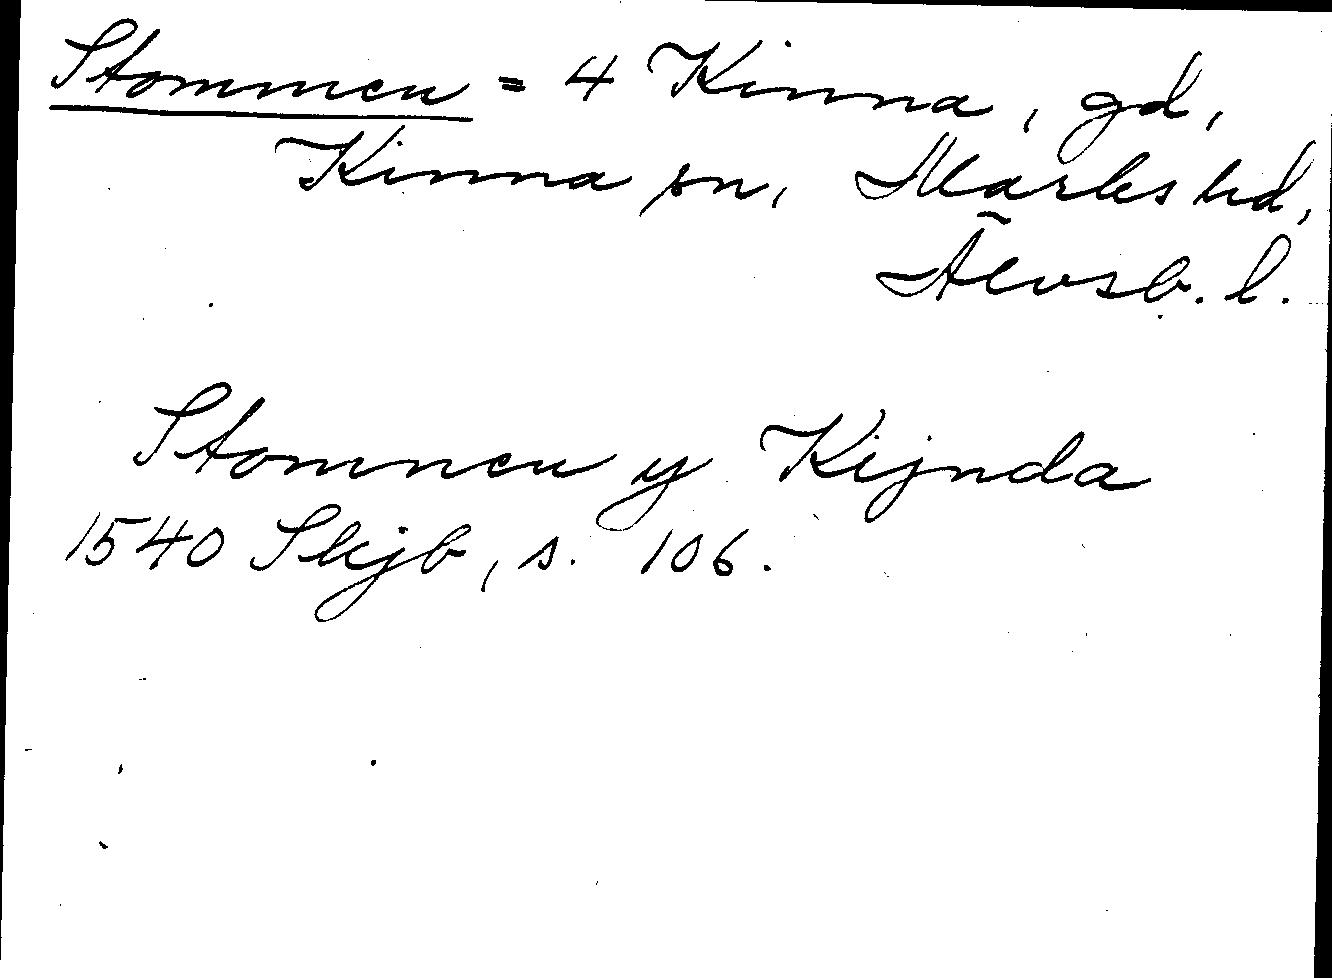 Stommen = 4 Kinna, gd,
Kinna sn, Marks hd,
Älvsb. l.
Stomnen y Kijnda
1540 Skjb, s. 106.